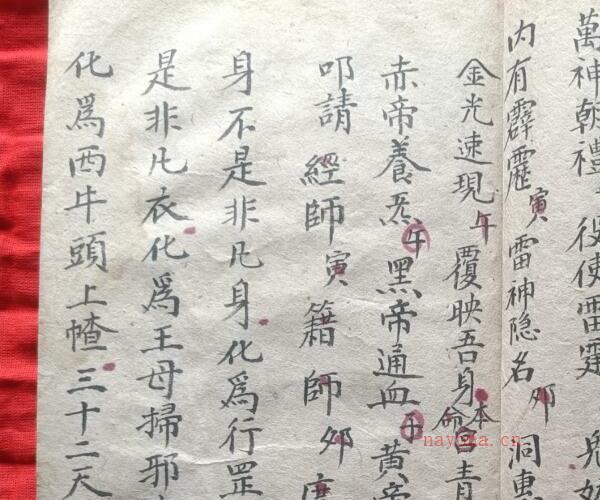 萬神朝禮 役使雷霆
内有霹靂寅雷神隐名夘洞
金光速現午覆映吾身本命宮青
赤帝養炁午黑帝通血子黄帝
叩請 經師寅籍師夘度
身不是非凢身化爲行罡
是非凢衣化爲王母掃邪
化爲西牛頭上幨三十二天
nayona.cn